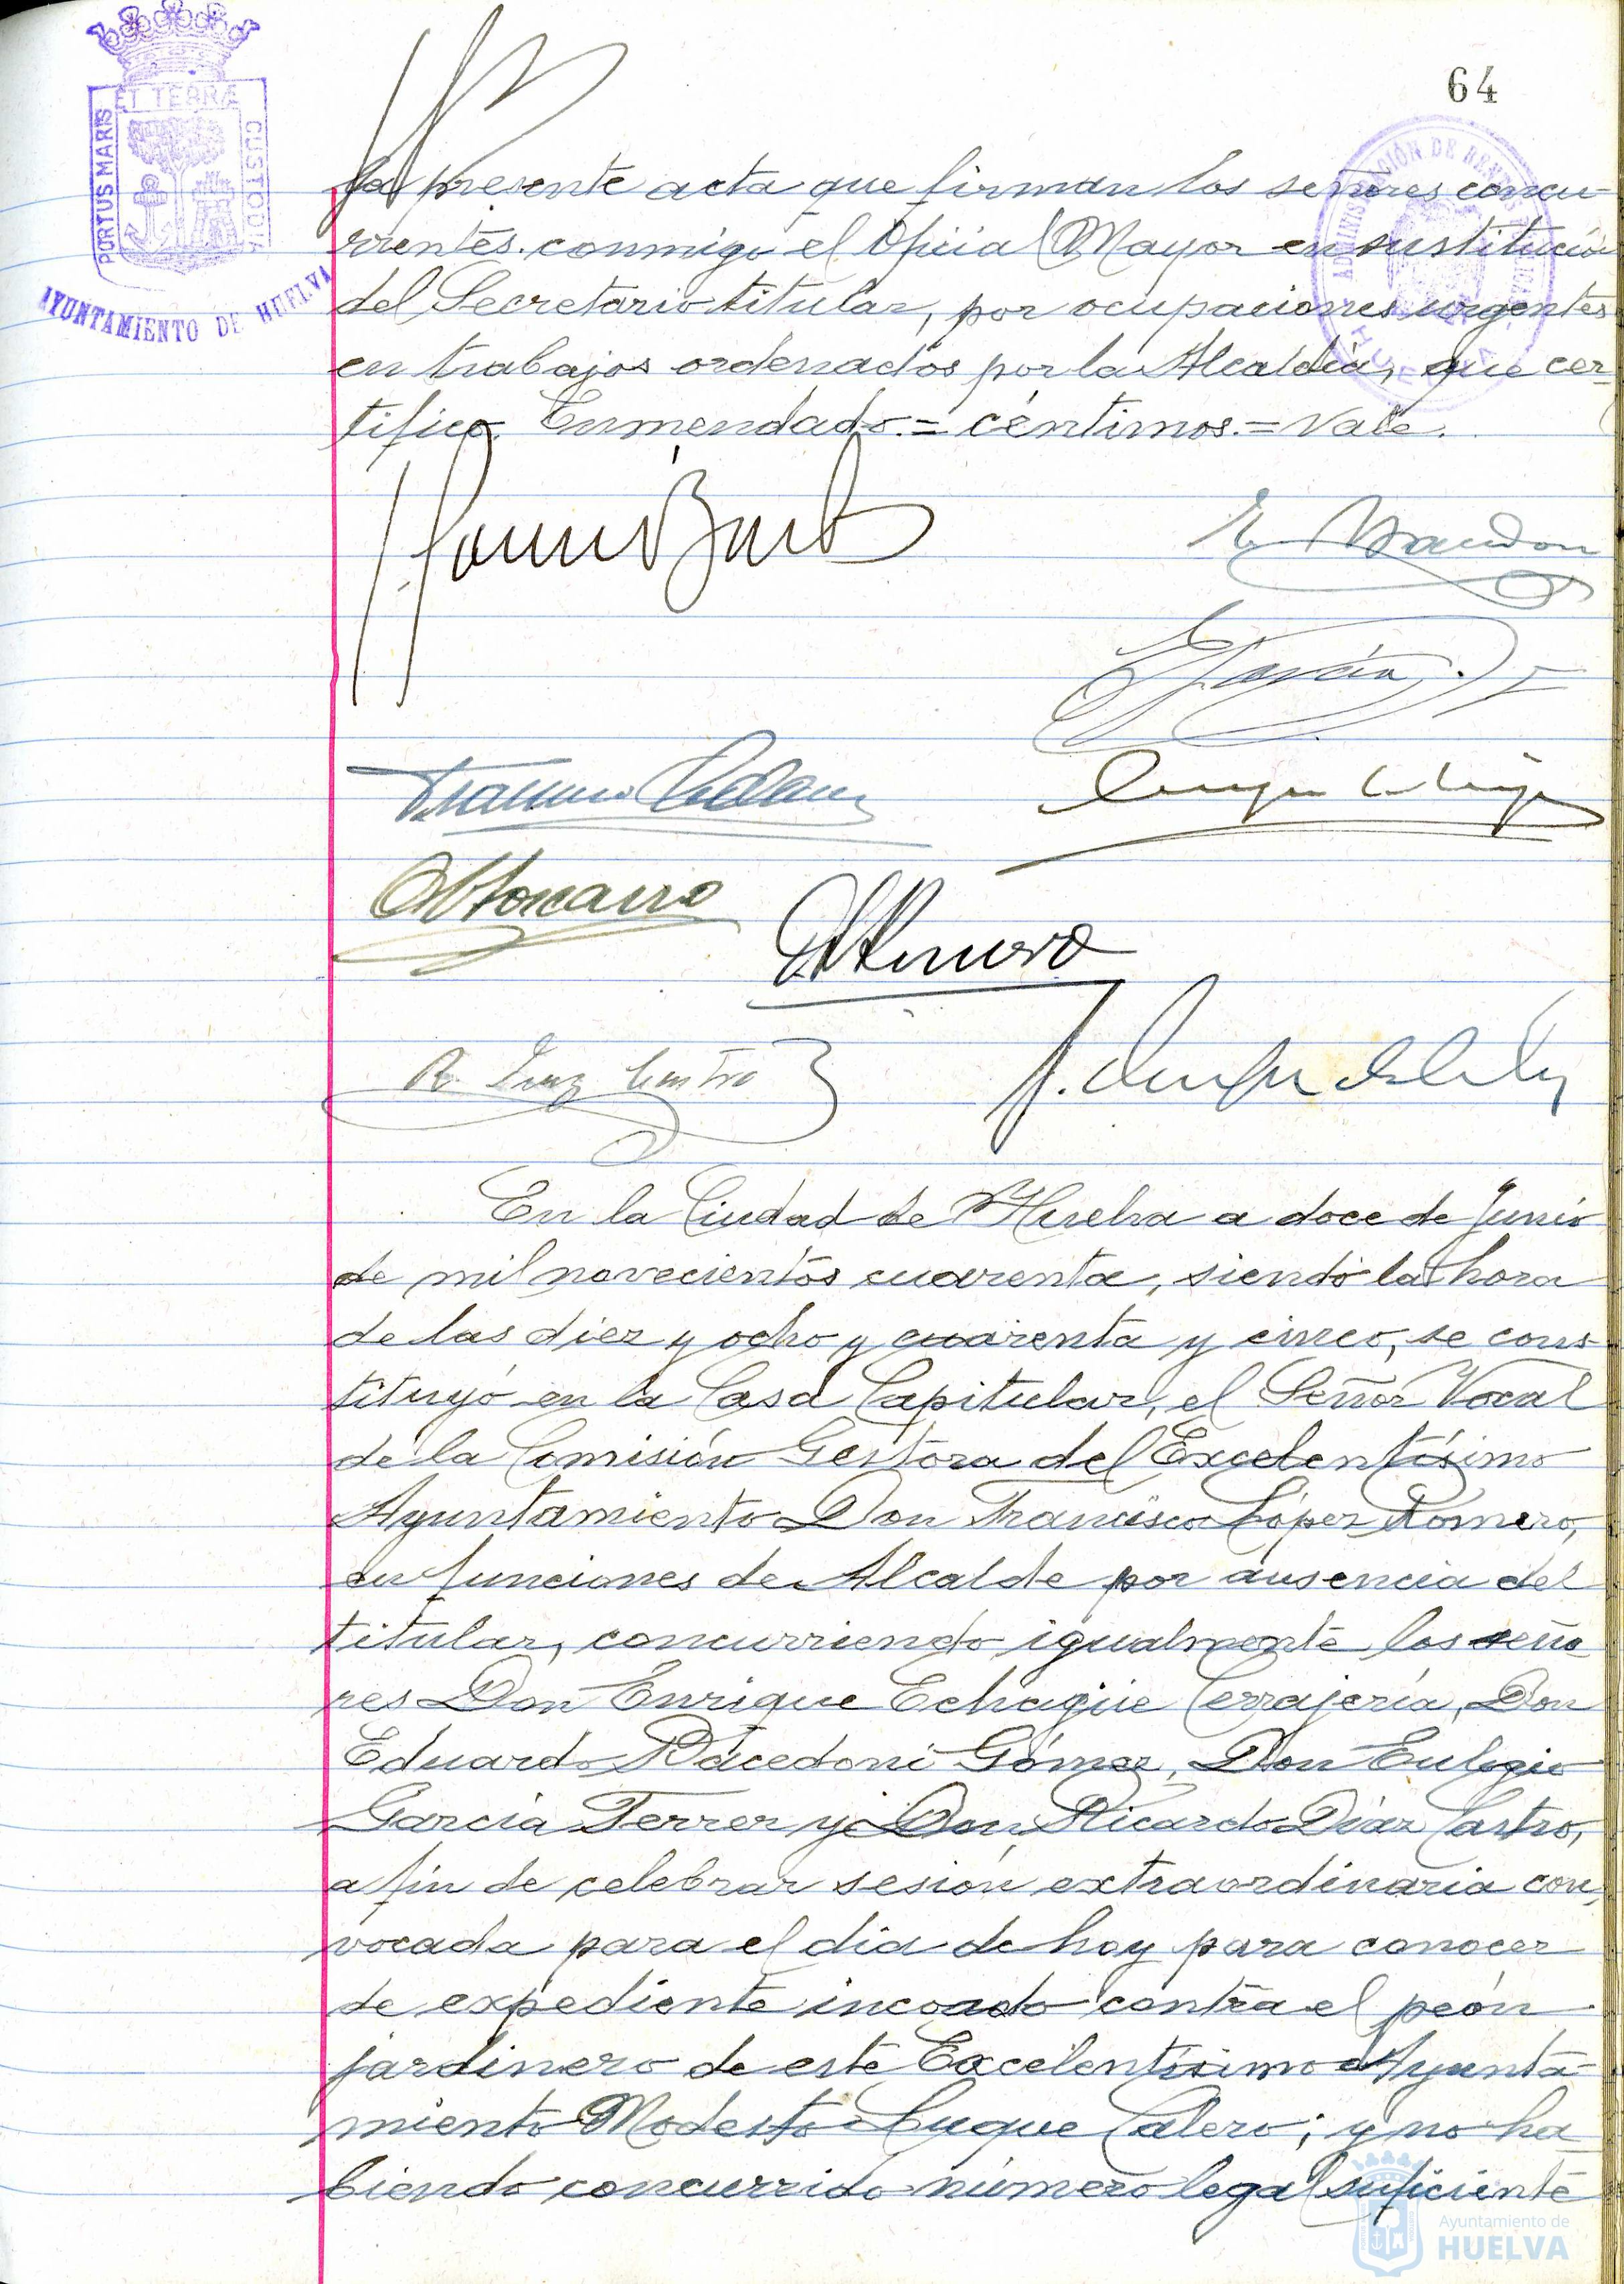 64
PORTUS MARIS
ET TERRÆ
CUSTODIA
AYUNTAMIENTO DE HUELVA
la presente acta que firman los señores concu-
rrentes conmigo el Oficial Mayor en sustitución
del Secretario titular, por ocupaciones urgentes
en trabajos ordenados por la Alcaldía, que cer-
tifico. Enmendado.=céntimos.=Vale.
R. Díaz Castro
En la Ciudad de Huelva a doce de Junio
de mil novecientos cuarenta, siendo la hora
de las diez y ocho y cuarenta y cinco, se cons-
tituyó en la Casa Capitular, el Señor Vocal
de la Comisión Gestora del Excelentísimo
Ayuntamiento Don Francisco López Romero,
en funciones de Alcalde por ausencia del
titular, concurriendo igualmente los seño
res Don Enrique Echagüe Cerrajería, Don
Eduardo Gómez, Don Eulogio
García Ferrer y Don Ricardo Díaz Castro,
a fin de celebrar sesión extraordinaria con-
vocada para el día de hoy para conocer
de expediente incoado contra el peón
jardinero de este Excelentísimo Ayunta-
miento Modesto Luque Calero; y no ha
biendo concurrido número legal suficiente
Ayuntamiento de
HUELVA